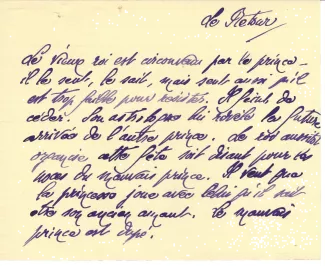 Le Retour
Le vieux roi est circonvenu par le prince –
il le sent, le sait, mais sent aussi qu'il
est trop faible pour résister. Il feint de
céder. Son astrologue lui révèle la future
arrivée de l'autre prince. Le roi aussitôt
organise cette fête soit disant pour les
noces du mauvais prince. Il veut que
la princesse joue avec celui qu'il sait
être son ancien amant. Le mauvais
prince est dupé.